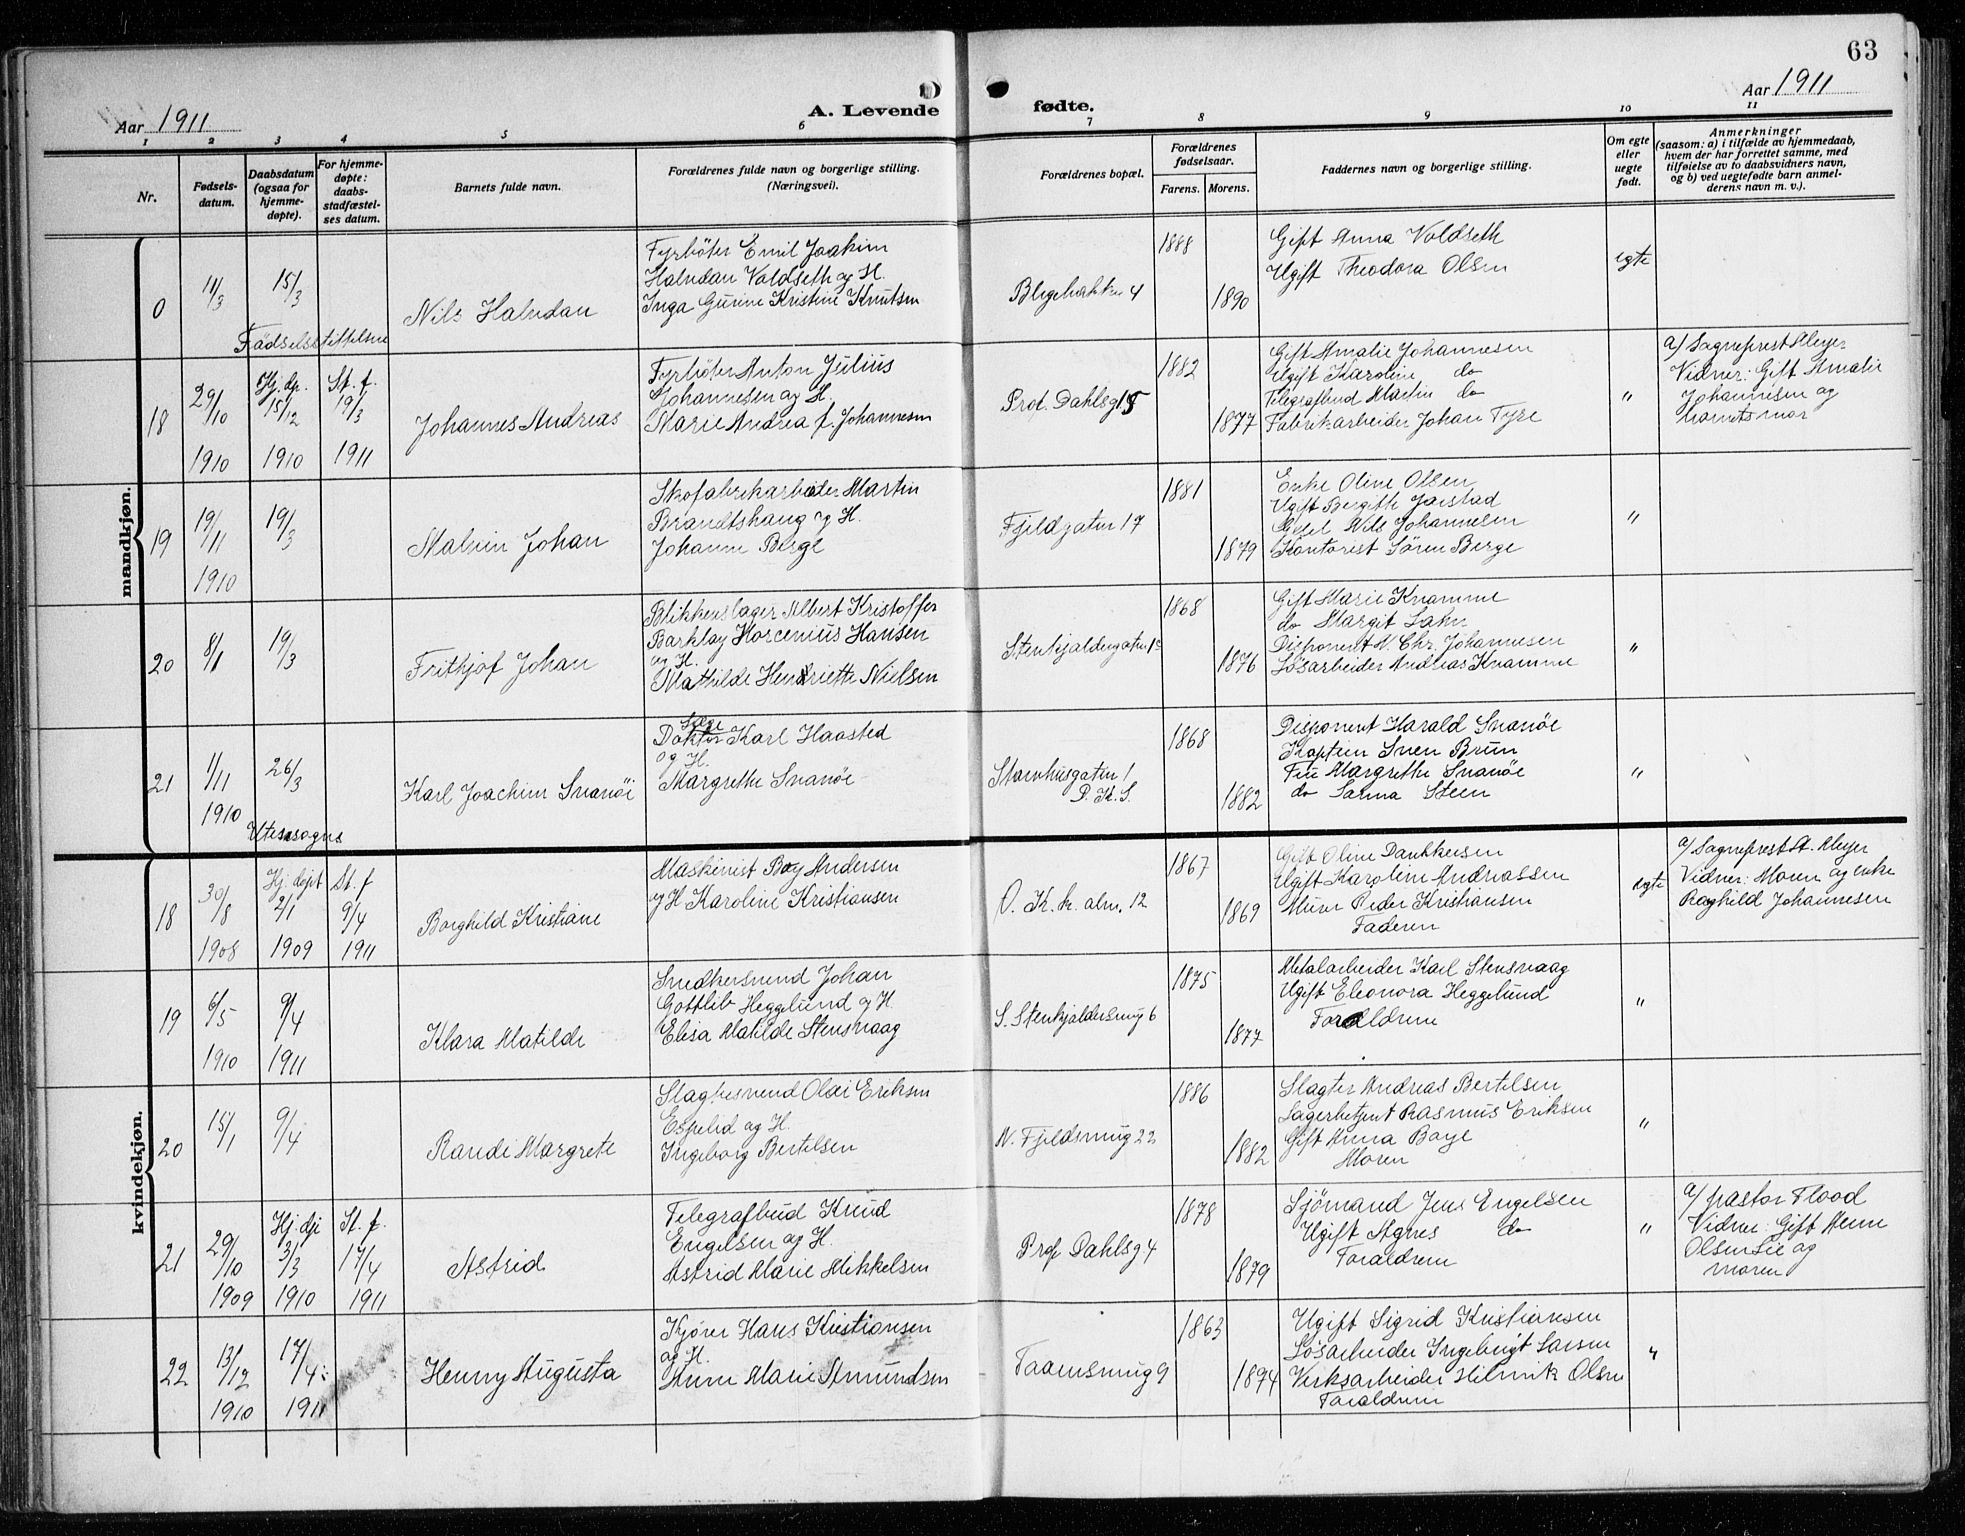 63
Aar 1911
A. Levende fødte.
Aar 1911
1 2 3 4 5 6 7 8 9 10 11
Nr.
Fødsels-
datum.
Daabsdatum
(ogsaa for
hjemme-
døpte).
For hjemme-
døpte:
daabs-
stadfæstel-
ses datum.
Barnets fulde navn.
Forældrenes fulde navn og borgerlige stilling.
(Næringsvei).
Forældrenes bopæl.
Forældrenes
fødselsaar.
Farens. Morens.
Faddernes navn og borgerlige stilling.
Om egte
eller
uegte
født.
Anmerkninger
(saasom: a) i tilfælde av hjemmedaab,
hvem der har forrettet samme, med
tilføielse av to daabsvidners navn,
og b) ved uegtefødte barn anmel-
derens navn m. v.).
mandkjøn.
0
11/3
15/3
Fødselsstiftelsen
Nils Halvdan
Fyrbøter Emil Joakim
Halvdan Voldseth og H.
Inga Gurine Kristine Knutsen
4
1888
1890
Gift Anna Voldseth
Ugift Theodora Olsen
egte
18
29/10
1910
Hj. dp.
15/12
1910
St. f.
19/3
1911
Johannes Andreas
Fyrbøter Anton Julius
Johannesen og H.
Marie Andrea f. Johannesen
Prof. Dahlsg 15
1882
1877
Gift Amalie Johannesen
Ugift Karoline do
Telegrafbud Martin do
Fabrikarbeider Johan Tyse
"
a/ Sogneprest Meyer
Vidner: Gift Amalie
Johannesen og
barnets mor
19
19/11
1910
19/3
Malvin Johan
Skofabrikarbeider Martin
Brandtshaug og H.
Johanne Berge
Fjeldgaten 17
1881
1879
Enke Oline Olsen
Ugift Bergith Jarstad
Nils Johannesen
Kontorist Søren Berge
"
20
8/1
19/3
Fritkjof Johan
Blikkenslager Albert Kristoffer
Barklay Horcenius Hansen
og H.
Mathilde Henriette Nielsen
Stenkjeldergaten
1868
1876
Gift Marie Knamme
do Margit
Disponent N. Chr. Johannesen
Løsarbeider Andreas Knamme
"
21
1/11
1910
26/3
Utensogns
Karl Joachim Svanöe
Læge
Doktor Karl Haasted
og H.
Margrethe Svanöe
Starvhusgaten 1
P. K. S.
1868
1882
Disponent Harald Svanöe
Kaptein Sven Brun
Fru Margrethe Svanöe
do Sanna Steen
"
kvindekjøn.
18
30/8
1908
Hj. døpt
2/1
1909
St. f
9/4
1911
Borghild Kristiane
Maskinist Boy Andersen
og H Karoline Kristiansen
Ø. K. k. alm. 12
1867
1869
Gift Oline Dankertsen
Ugift Karoline Andreassen
Murer Peder Kristiansen
Faderen
egte
a/ Sogneprest St. Meyer
Vidner: Moren og enke
Raghild Johannesen
19
6/5
1910
9/4
1911
Klara Matilde
Snedkersvend Johan
Gottlib Heggelund og H.
Elisa Matilde Stensvaag
S. Stenkjeldersmug 6
1875
1877
Metalarbeider Karl Stensvaag
Ugift Eleonora Heggelund
Forældrene
"
20
15/1
9/4
Randi Margrete
Slagtersvend Olai Eriksen
Espelid og H.
Ingeborg Bertelsen
N. Fjeldsmug 22
1886
1882
Slagter Andreas Bertelsen
Lagerbetjent Rasmus Eriksen
Gift Anna Boye
Moren
"
21
29/10
1909
Hj. dp
3/3
1910
St. f.
17/4
1911
Astrid
Telegrafbud Knud
Engelsen og H.
Astrid Marie Mikkelsen
Prof Dahlsg 4
1878
1879
Sjömand Jens Engelsen
Ugift Agnes do
Forældrene
"
a/ pastor Flood
Vidner: Gift
Olsen Lie og
moren
22
13/12
1910
17/4
1911
Henny Augusta
Kjører Hans Kristiansen
og H.
Anne Marie Amundsen
9
1863
1874
Ugift Sigrid Kristiansen
Løsarbeider Ingebrigt Larsen
Verksarbeider Olsen
Forældrene
"